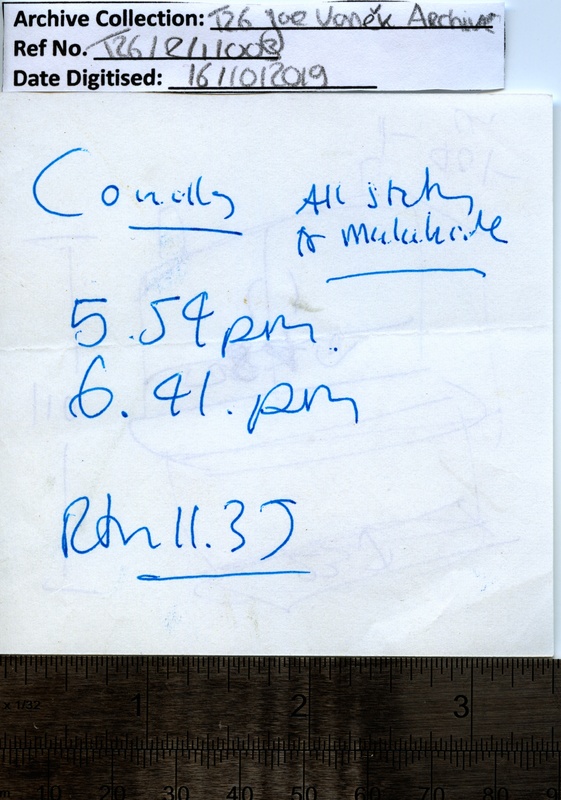 Archive Collection: T26 Joe Vaněk Archive
Ref No. T26/2/1/1008
Date Digitised: 16/10/2019
Conolly All stations
to Malahide
5.54pm.
6.41.pm
Rtn 11.35
x 1/32 1 2 3
10 20 30 40 50 60 70 80 9